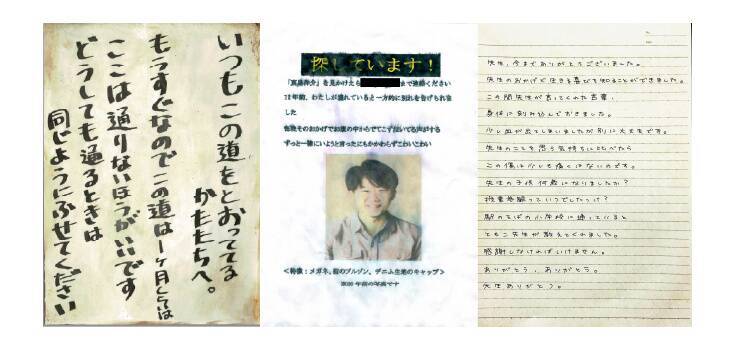 いつもこの道をとおってる
かたたちへ。
もうすぐなのでこの道は一ヶ月しては
ここは通りないほうがいいです
どうしても通るときは
同じようにふせてください
探しています!
」を見かけたら
まで連絡ください
年前、わたしが
ていると一方的に別れを告げられま
した
そのおかげでお腹の中からでてこず泣いてる声がする
ずっと一緒にいようと言ったにもかかわらずこわいこわい
<特徴:メガネ、紺のブルゾン、デニム生地のキャップ>
年前の写真です
先生、今までありがとうございました。
先生のおかげで生きる喜びを知ることができました。
この間先生が言ってくれた言葉、
身体に刻み込んでおきました。
少し血が出てしまいましたが別に大丈夫です。
先生のことを思う気持ちに比べたら
この傷は少しも痛くはないのです。
先生の子供何歳になりましたか?
授業参観っていつでしたっけ?
駅のそばの小学校に通っていると
ともこ先生が教えてくれました。
感謝しなければいけません。
ありがとう、ありがとう。
先生ありがとう。